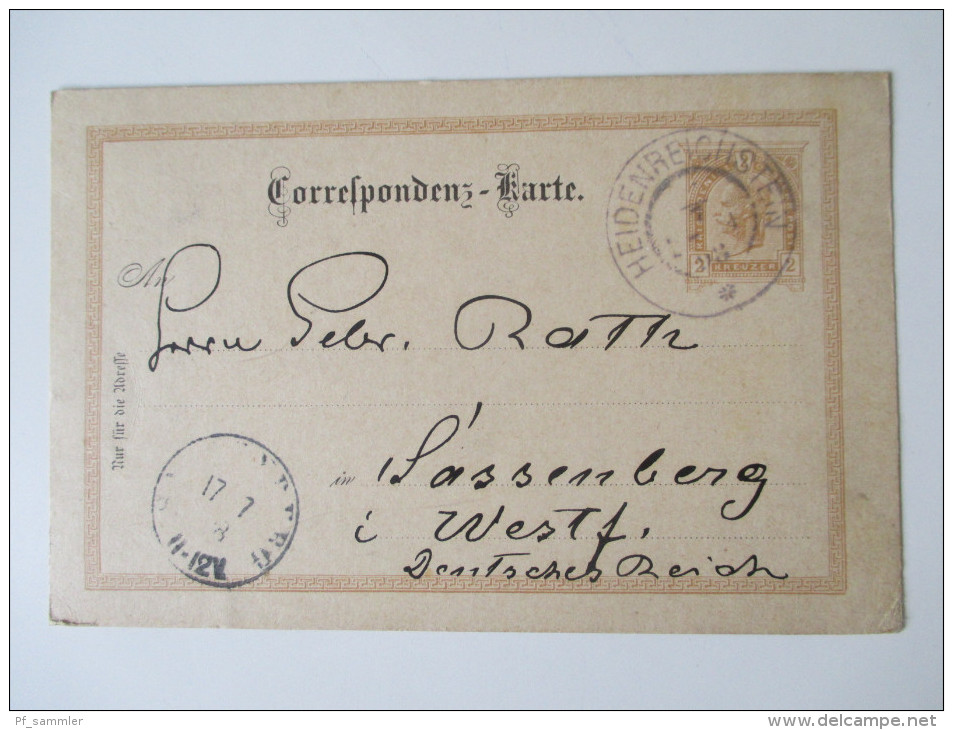 Correspondenz-Karte.
HEIDENREICHSTEIN
2 KREUZER 2
An
Herrn Peter. Rath
Nur für die Adresse
in Sassenberg
i Westf.
Deutsches Reich
17 7
Pf_sammler
www.delcampe.net